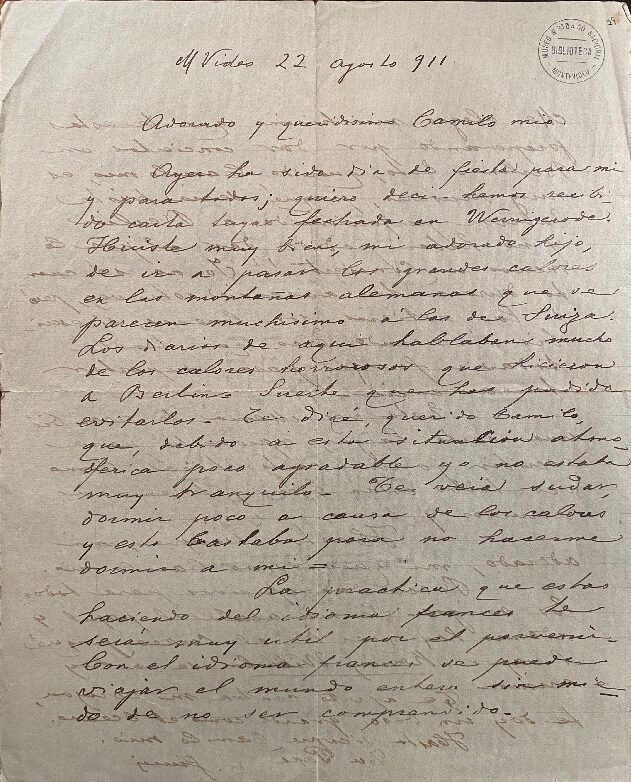 MVideo 22 agosto 911
MUSEO HISTÓRICO NACIONAL
BIBLIOTECA
MONTEVIDEO
Adorado y queridisimo Camilo mio
Ayer ha sido dia de fiesta para mi
y para todos; quiero decir hemos recibi-
do carta tuya fechada en Wernigerode.
Hiciste muy bien, mi adorado hijo,
de ir a pasar los grandes calores
en las montañas alemanas que se
parecen muchisimo á las de Suiza.
Los diarios de aqui hablaban mucho
de los calores horrorosos que hicieron
a Berlin. Suerte que has podido
evitarlos. Te diré, querido Camilo,
que, debido a esta situación atmos-
ferica poco agradable yo no estaba
muy tranquilo. Te veia sudar,
dormir poco a causa de los calores
y esto bastaba para no hacerme
dormir a mi =
La practica que estas
haciendo del idioma frances te
será muy util por el porvenir.
Con el idioma frances se puede
viajar el mundo entero sin mie-
do de no ser comprendido.